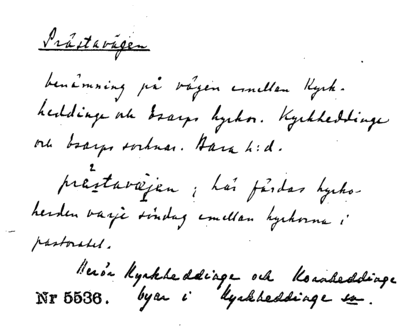 Prästavägen
benämning på vägen emellan Kyrk-
heddinge och Esarps kyrkor. Kyrkheddinge
och Esarps socknar. Bara h:d.
prästaväjen; här färdas kyrko-
herden varje söndag emellan kyrkorna i
pastoratet.
Berör Kyrkheddinge och
Nr 5536. byar i Kyrkheddinge sn.